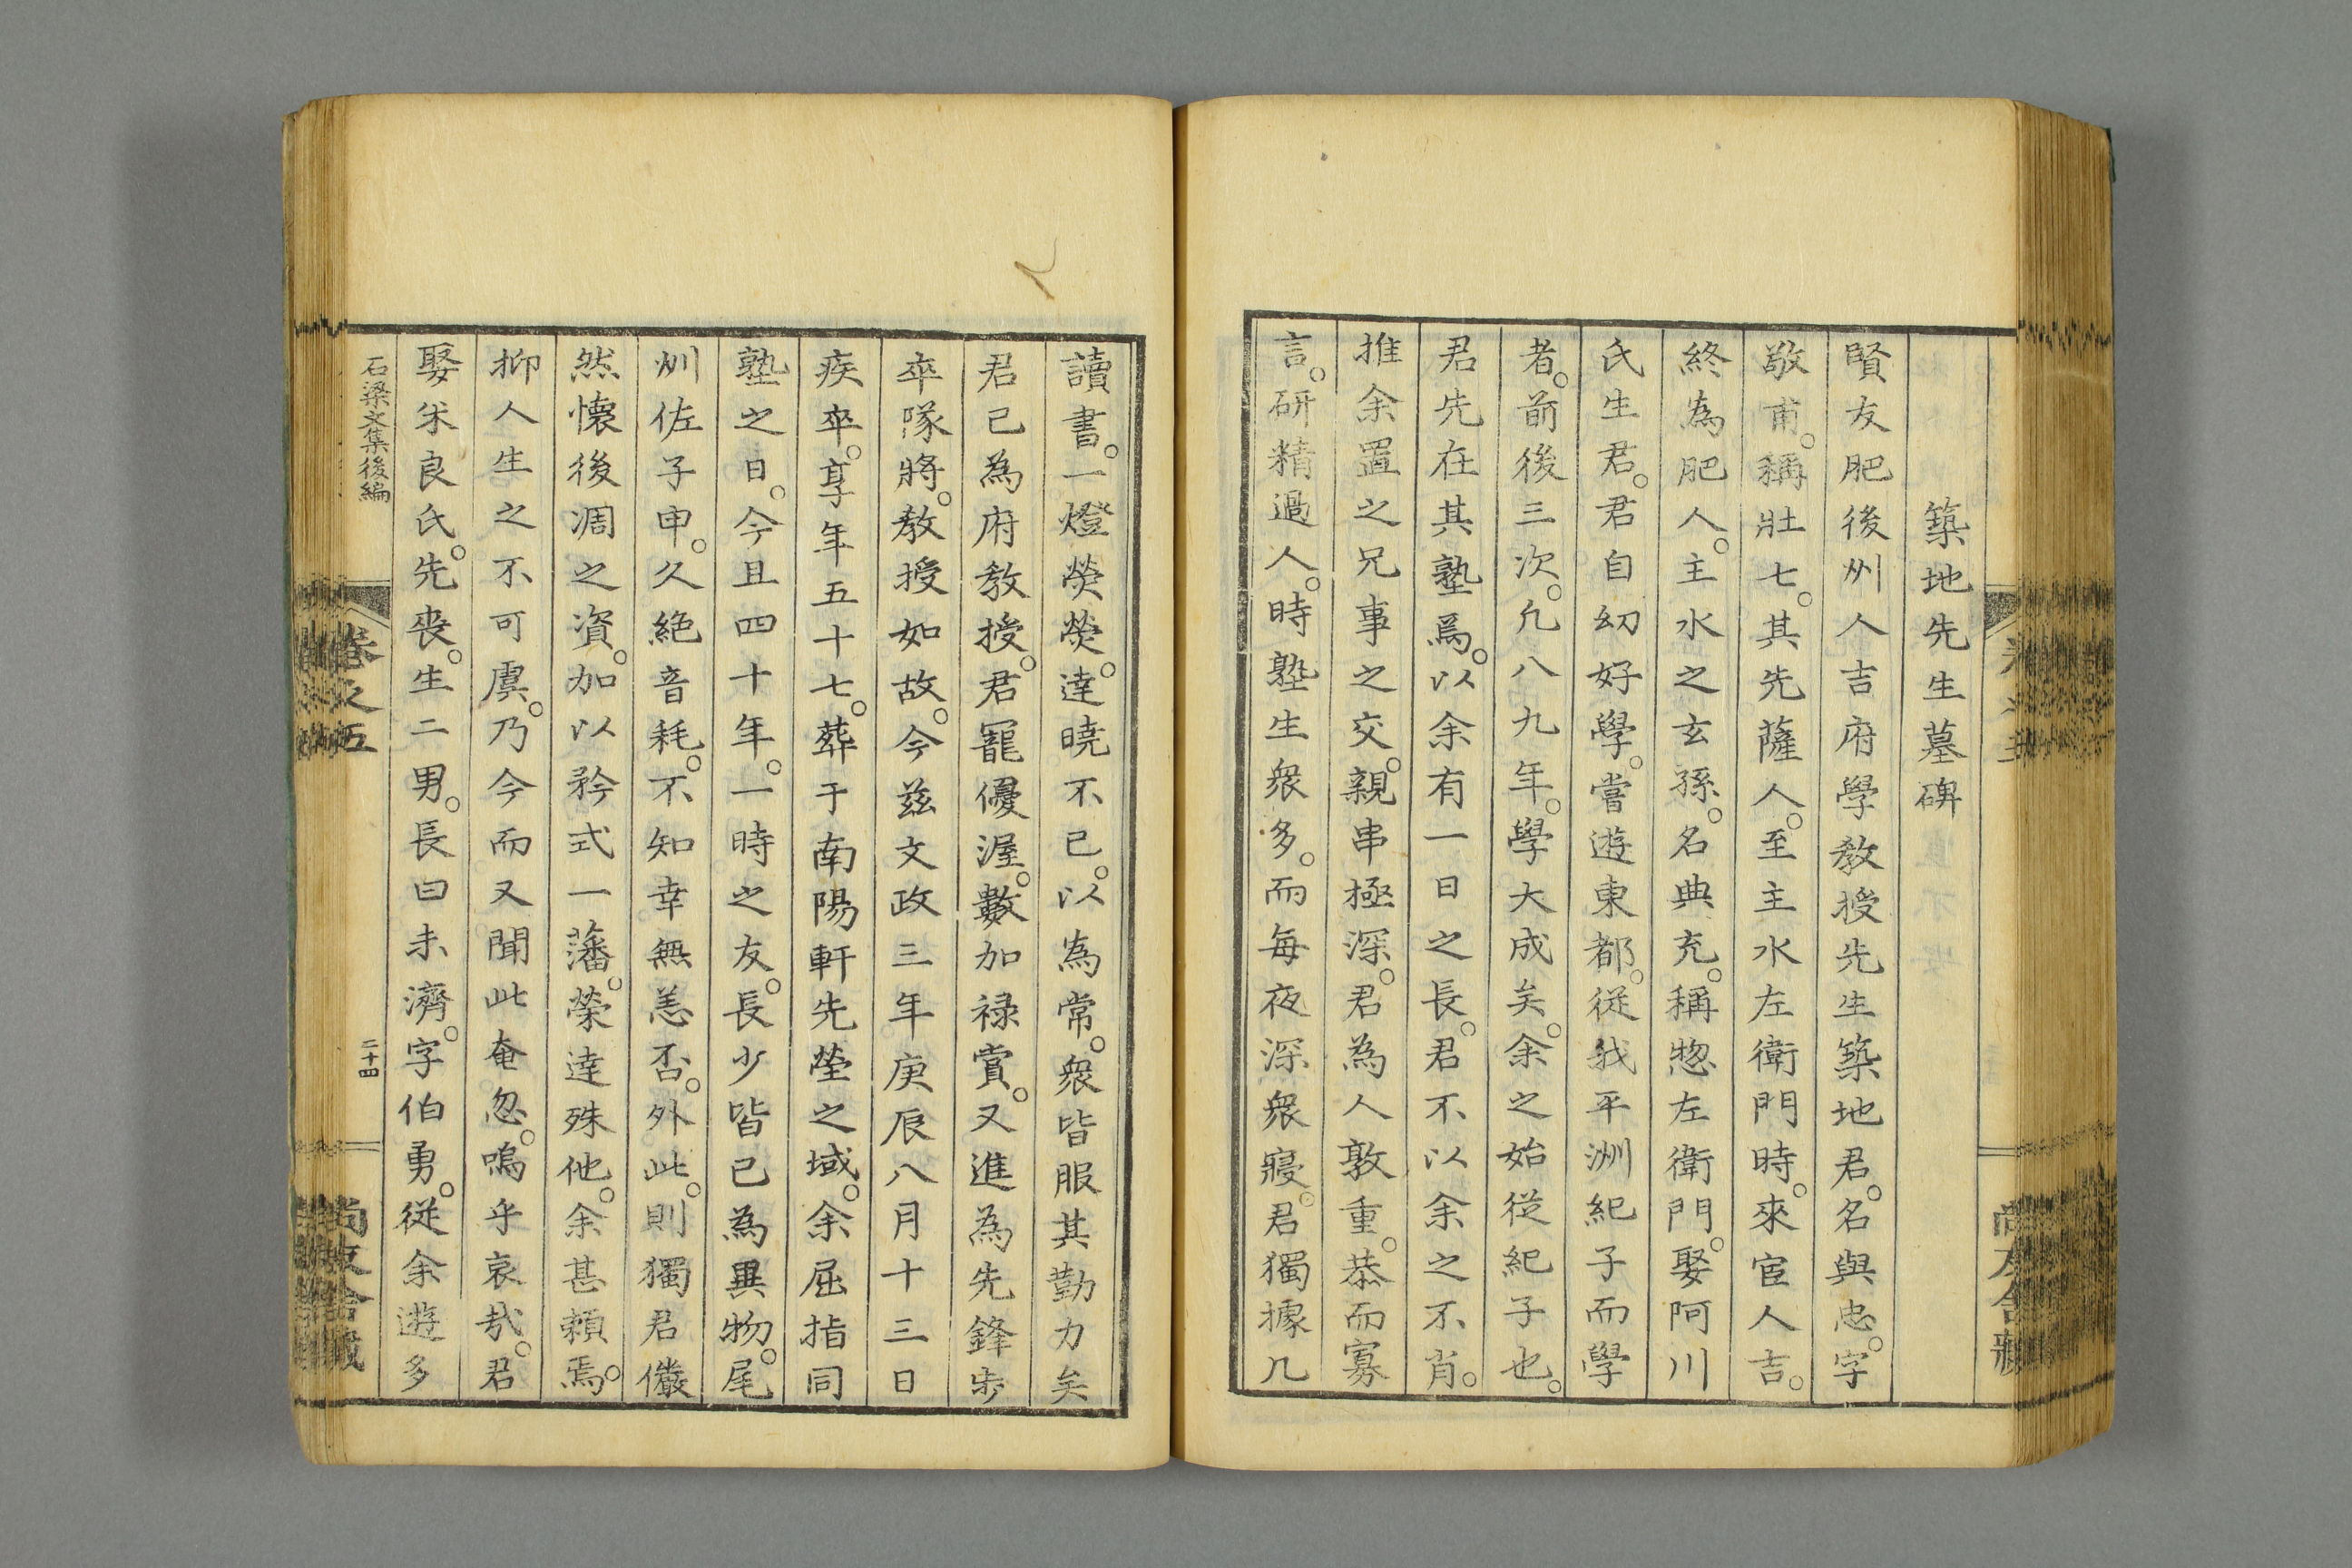 築地先生墓碑
賢友肥後州人吉府學教授先生築地君。名與忠。字
敬甫。稱壯七。其先薩人。至主水左衛門時。來宦人吉。
終為肥人。主水之玄孫。名典充。稱惣左衛門。娶阿川
氏生君。君自幼好學。嘗遊東都。從我平洲紀子而學
者。前後三次。凢八九年。學大成矣。余之始從紀子也。
君先在其塾焉。以余有一日之長。君不以余之不肖。
推余置之兄事之交。親串極深。君為人敦重。恭而寡
言。研精過人。時塾生衆多。而每夜深衆寢。君獨據几
讀書。一燈熒熒。達曉不已。以為常。衆皆服其勤力矣
君已為府教授。君寵優渥。數加禄賞。又進為先鋒步
卒隊將。教授如故。今茲文政三年庚辰八月十三日
疾卒。享年五十七。葬于南陽軒先塋之域。余屈指同
塾之日。今且四十年。一時之友。長少皆已為異物。尾
州佐子申。久絕音耗。不知幸無恙否。外此。則獨君儼
然懷後凋之資。加以矜式一藩。榮達殊他。余甚賴焉。
抑人生之不可虞。乃今而又聞此奄忽。嗚乎哀哉。君
娶米良氏。先喪。生二男。長曰未濟。字伯勇。從余遊多
石梁文集後編
卷之五
二十四
尚友舍藏